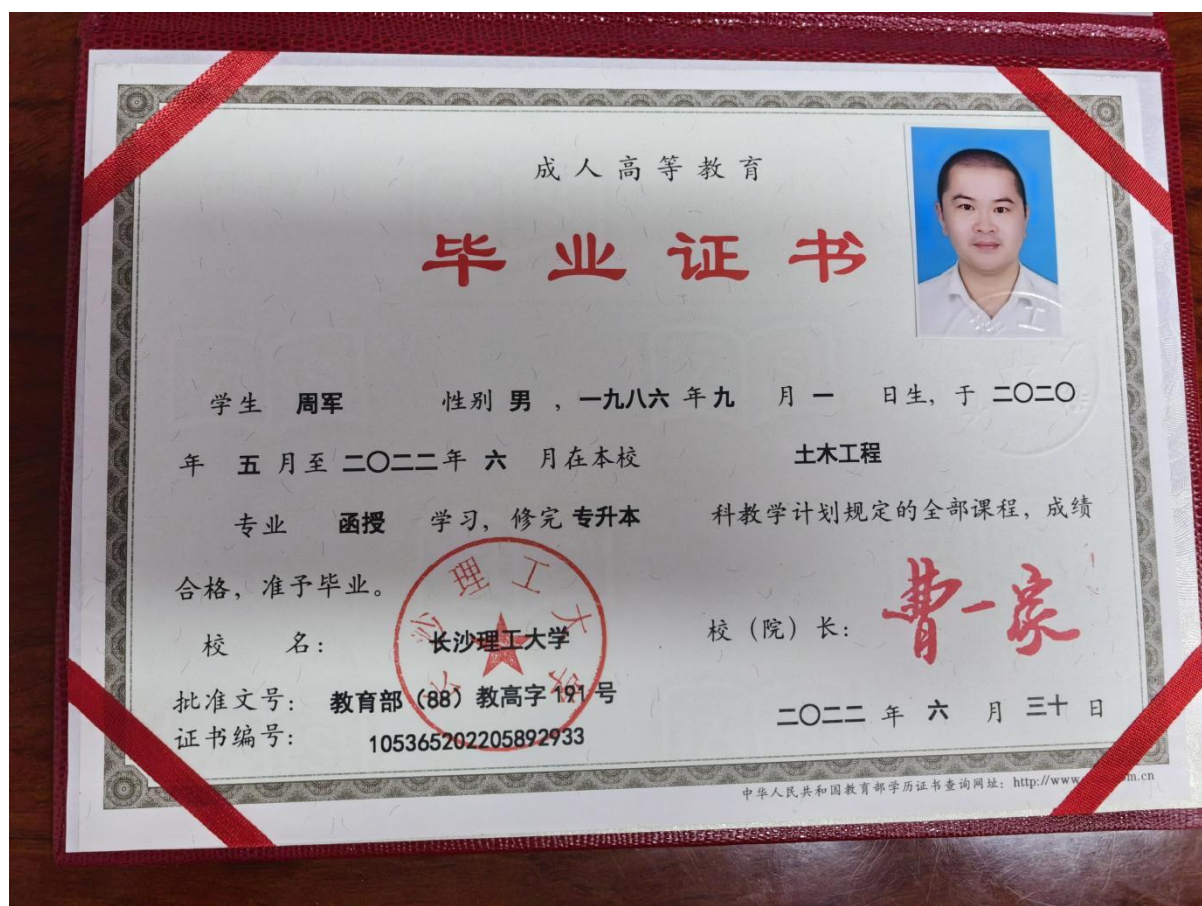 成人高等教育
毕业证书
学生 周军 性别 男 ，一九八六 年 九 月 一 日生，于 二〇二〇
年 五 月至 二〇二二 年 六 月在本校 土木工程
专业 函授 学习，修完 专升本 科教学计划规定的全部课程，成绩
合格，准予毕业。
校 名： 长沙理工大学
校（院）长： 曹一家
批准文号： 教育部（88）教高字 191 号
证书编号： 105365202205892933
二〇二二 年 六 月 三十 日
长沙理工大学
中华人民共和国教育部学历证书查询网址：http://www